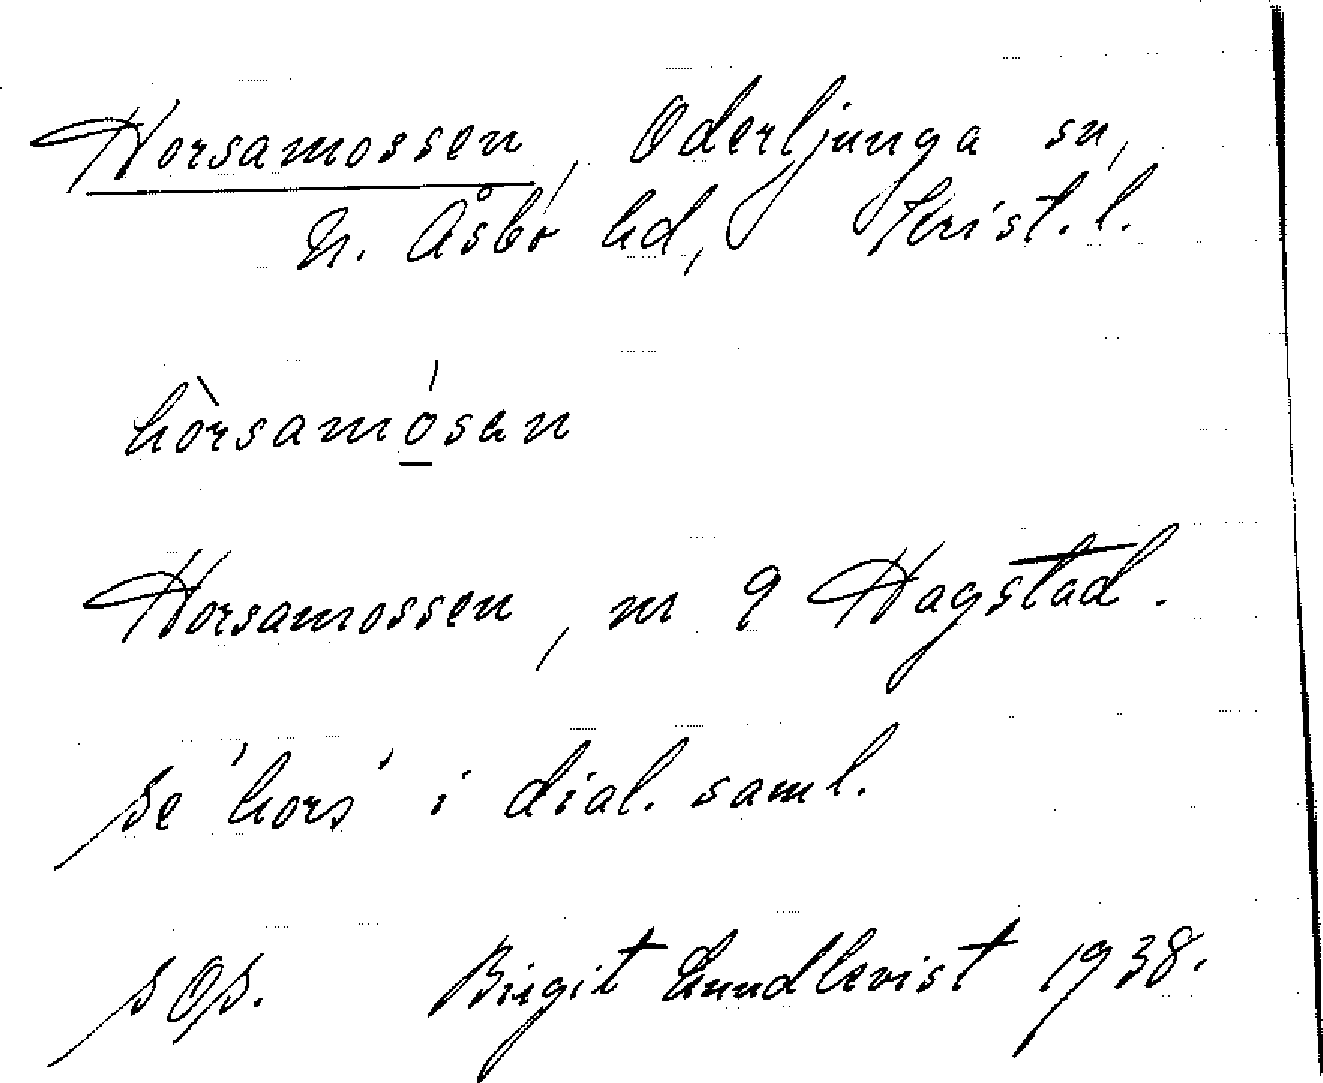 Horsamossen, Oderljunga sn,
N. Åsbo hd, Krist. l.
hòrsamósan
Horsamossen, m 9 Hagstad.
se 'hors' i dial. saml.
s Op. Birgit Lundkvist 1938.